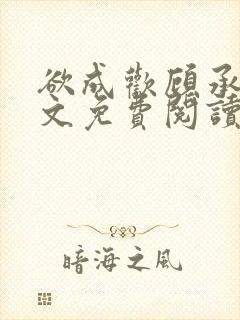 欲成歡顧承
文免費閱讀
暗海之风